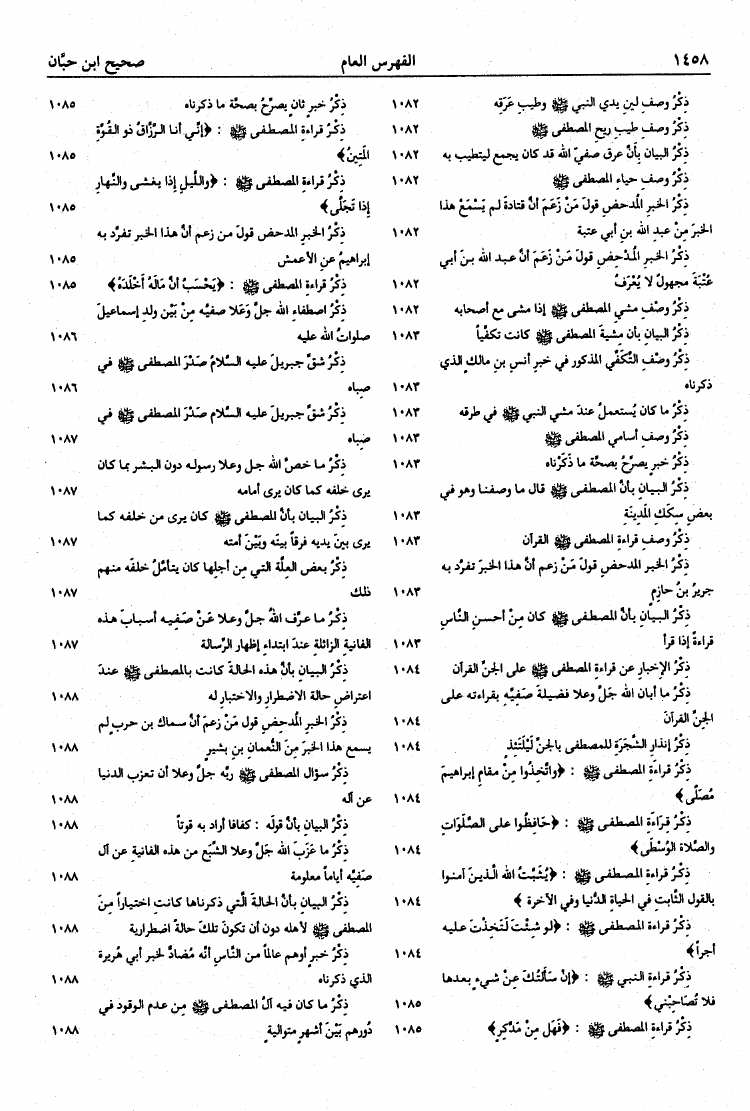 ١٤٥٨ الفهرس العام صحيح ابن حبَّان
ذِكْرُ وصفِ لين يدي النبي ﷺ وطيبِ عَرَقِه ١٠٨٢
ذِكْرُ وصفِ طيبِ ريحِ المصطفى ﷺ ١٠٨٢
ذِكْرُ البيان بأنَّ عرق صفيّ الله قد كان يجمع ليتطيب به ١٠٨٢
ذِكْرُ وصفِ حياءِ المصطفى ﷺ ١٠٨٢
ذِكْرُ الخبر المُدحض قولَ مَنْ زَعَمَ أنَّ قتادةً لم يَسْمَعْ هذا
الخبرَ مِنْ عبد الله بن أبي عتبة ١٠٨٢
ذِكْرُ الخبرِ المُدْحِضِ قولَ مَنْ زَعَمَ أنَّ عبد الله بنَ أبي
عُتْبَةَ مجهولٌ لا يُعْرَفُ ١٠٨٢
ذِكْرُ وصْفِ مشي المصطفى ﷺ إذا مشى مع أصحابه ١٠٨٢
ذِكْرُ البيان بأن مشيةَ المصطفى ﷺ كانت تكفِّياً ١٠٨٣
ذِكْرُ وصْفِ التَّكَفِّي المذكور في خبرِ أنسِ بنِ مالك الذي
ذكرناه ١٠٨٣
ذِكْرُ ما كان يُستعملُ عندَ مشي النبي ﷺ في طرقه ١٠٨٣
ذِكْرُ وصفِ أسامي المصطفى ﷺ ١٠٨٣
ذِكْرُ خبرٍ يصرِّحُ بصحَّة ما ذَكَرْناه ١٠٨٣
ذِكْرُ البيان بأنَّ المصطفى ﷺ قال ما وصفنا وهو في
بعضِ سكَكِ المدينَةِ ١٠٨٣
ذِكْرُ وصفِ قراءةِ المصطفى ﷺ القرآن ١٠٨٣
ذِكْرُ الخبر المدحض قولَ مَنْ زعم أنَّ هذا الخبرَ تفرَّد به
جريرُ بنُ حازمٍ ١٠٨٣
ذِكْرُ البيان بأنَّ المصطفى ﷺ كان مِنْ أحسنِ النَّاسِ
قراءةً إذا قرأ ١٠٨٣
ذِكْرُ الإخبار عن قراءةِ المصطفى ﷺ على الجنِّ القرآن ١٠٨٤
ذِكْرُ ما أبان الله جَلَّ وعلا فضيلةَ صَفِيِّه بقراءته على
الجنِّ القرآنَ ١٠٨٤
ذِكْرُ إنذارِ الشَّجَرَةِ للمصطفى بالجنِّ لَيْلَتَئِذٍ ١٠٨٤
ذِكْرُ قراءَةِ المصطفى ﷺ : ﴿واتَّخِذُوا مِنْ مقام إبراهيمَ
مُصَلَّى﴾ ١٠٨٤
ذِكْرُ قرَاءَةِ المصطفى ﷺ : ﴿حَافِظُوا على الصَّلَوَاتِ
والصَّلاة الوُسْطَى﴾ ١٠٨٤
ذِكْرُ قراءةِ المصطفى ﷺ : ﴿يُثَبِّتُ الله الَّذينَ آمنوا
بالقولِ الثَّابتِ في الحياةِ الدُّنيا وفي الآخرة﴾ ١٠٨٤
ذِكْرُ قراءة المصطفى ﷺ : ﴿لو شئْتَ لَتَخِذْتَ عليه
أجراً﴾ ١٠٨٤
ذِكْرُ قراءةِ النبي ﷺ : ﴿إنْ سَأَلْتُكَ عنْ شيءٍ بعدها
فلا تُصَاحِبْني﴾ ١٠٨٥
ذِكْرُ قراءةِ المصطفى ﷺ : ﴿فَهَل مِنْ مَدَّكِرٍ﴾ ١٠٨٥
ذِكْرُ خبرٍ ثانٍ يصرِّحُ بصحَّة ما ذكرناه ١٠٨٥
ذِكْرُ قراءةِ المصطفى ﷺ : ﴿إنِّي أنـا الرزَّاقُ ذو القُوَّةِ
المَتِينُ﴾ ١٠٨٥
ذِكْرُ قراءةِ المصطفى ﷺ : ﴿واللَّيلِ إذا يغشى والنَّهارِ
إذا تَجَلَّى﴾ ١٠٨٥
ذِكْرُ الخبرِ المدحضِ قولَ من زعم أنَّ هذا الخبر تفرَّد به
إبراهيمُ عن الأعمش ١٠٨٥
ذِكْرُ قراءةِ المصطفى ﷺ : ﴿يَحْسَبُ أنَّ مَالَهُ أَخْلَدَهُ﴾ ١٠٨٥
ذِكْرُ اصطفاءِ الله جلَّ وَعَلا صفيَّه مِنْ بَيْنِ ولدِ إسماعيلَ
صلواتُ الله عليه ١٠٨٦
ذِكْرُ شقِّ جبريلَ عليه السَّلامُ صَدْرَ المصطفى ﷺ في
صباه ١٠٨٦
ذِكْرُ شقِّ جبريلَ عليه السلام صدْرَ المصطفى ﷺ في
صِباه ١٠٨٧
ذِكْرُ ما خصَّ الله جل وعلا رسولَه دون البشر بما كان
يرى خلفه كما كان يرى أمامه ١٠٨٧
ذِكْرُ البيان بأنَّ المصطفى ﷺ كان يرى من خلفه كما
يرى بينَ يديه فرقاً بينَه وبَيْنَ أمته ١٠٨٧
ذِكْرُ بعض العِلَّة التي مِن أجلِها كان يتأمَّلُ خلفَه منهم
ذلك ١٠٨٧
ذِكْرُ ما عرَّف اللهُ جلَّ وعلا عَنْ صَفيه أسبابَ هذه
الفانية الزائلةِ عندَ ابتداءِ إظهارِ الرِّسالة ١٠٨٧
ذِكْرُ البيان بأنَّ هذه الحالةَ كانت بالمصطفى ﷺ عندَ
اعتراضِ حالةِ الاضطرارِ والاختبارِ له ١٠٨٨
ذِكْرُ الخبر المدحض قول مَنْ زعمَ أنَّ سماك بن حربٍ لم
يسمع هذا الخبرَ مِنَ النُّعمانِ بن بشيرٍ ١٠٨٨
ذِكْرُ سؤال المصطفى ﷺ ربَّه جلَّ وعلا أن تعزب الدنيا
عن آله ١٠٨٨
ذِكْرُ البيان بأنَّ قولَه : كفافا أراد به قوتاً ١٠٨٨
ذِكْرُ ما عَزَبَ الله جَلَّ وعلا الشِّبَع من هذه الفانية عن آل
صَفيِّه أياماً معلومة ١٠٨٨
ذِكْرُ البيان بأنَّ الحالةَ الَّتي ذكرناها كانت اختياراً مِنَ
المصطفى ﷺ لأهله دون أن تكونَ تلكَ حالةً اضطرارية ١٠٨٨
ذِكْرُ خبرٍ أوهم عالماً من النَّاسِ أنَّه مُضادٌّ لخبر أبي هُريرة
الذي ذكرناه ١٠٨٨
ذِكْرُ ما كان فيه آلُ المصطفى ﷺ مِن عدم الوقود في
دُورهم بَيْنَ أشهرٍ متواليةٍ ١٠٨٨